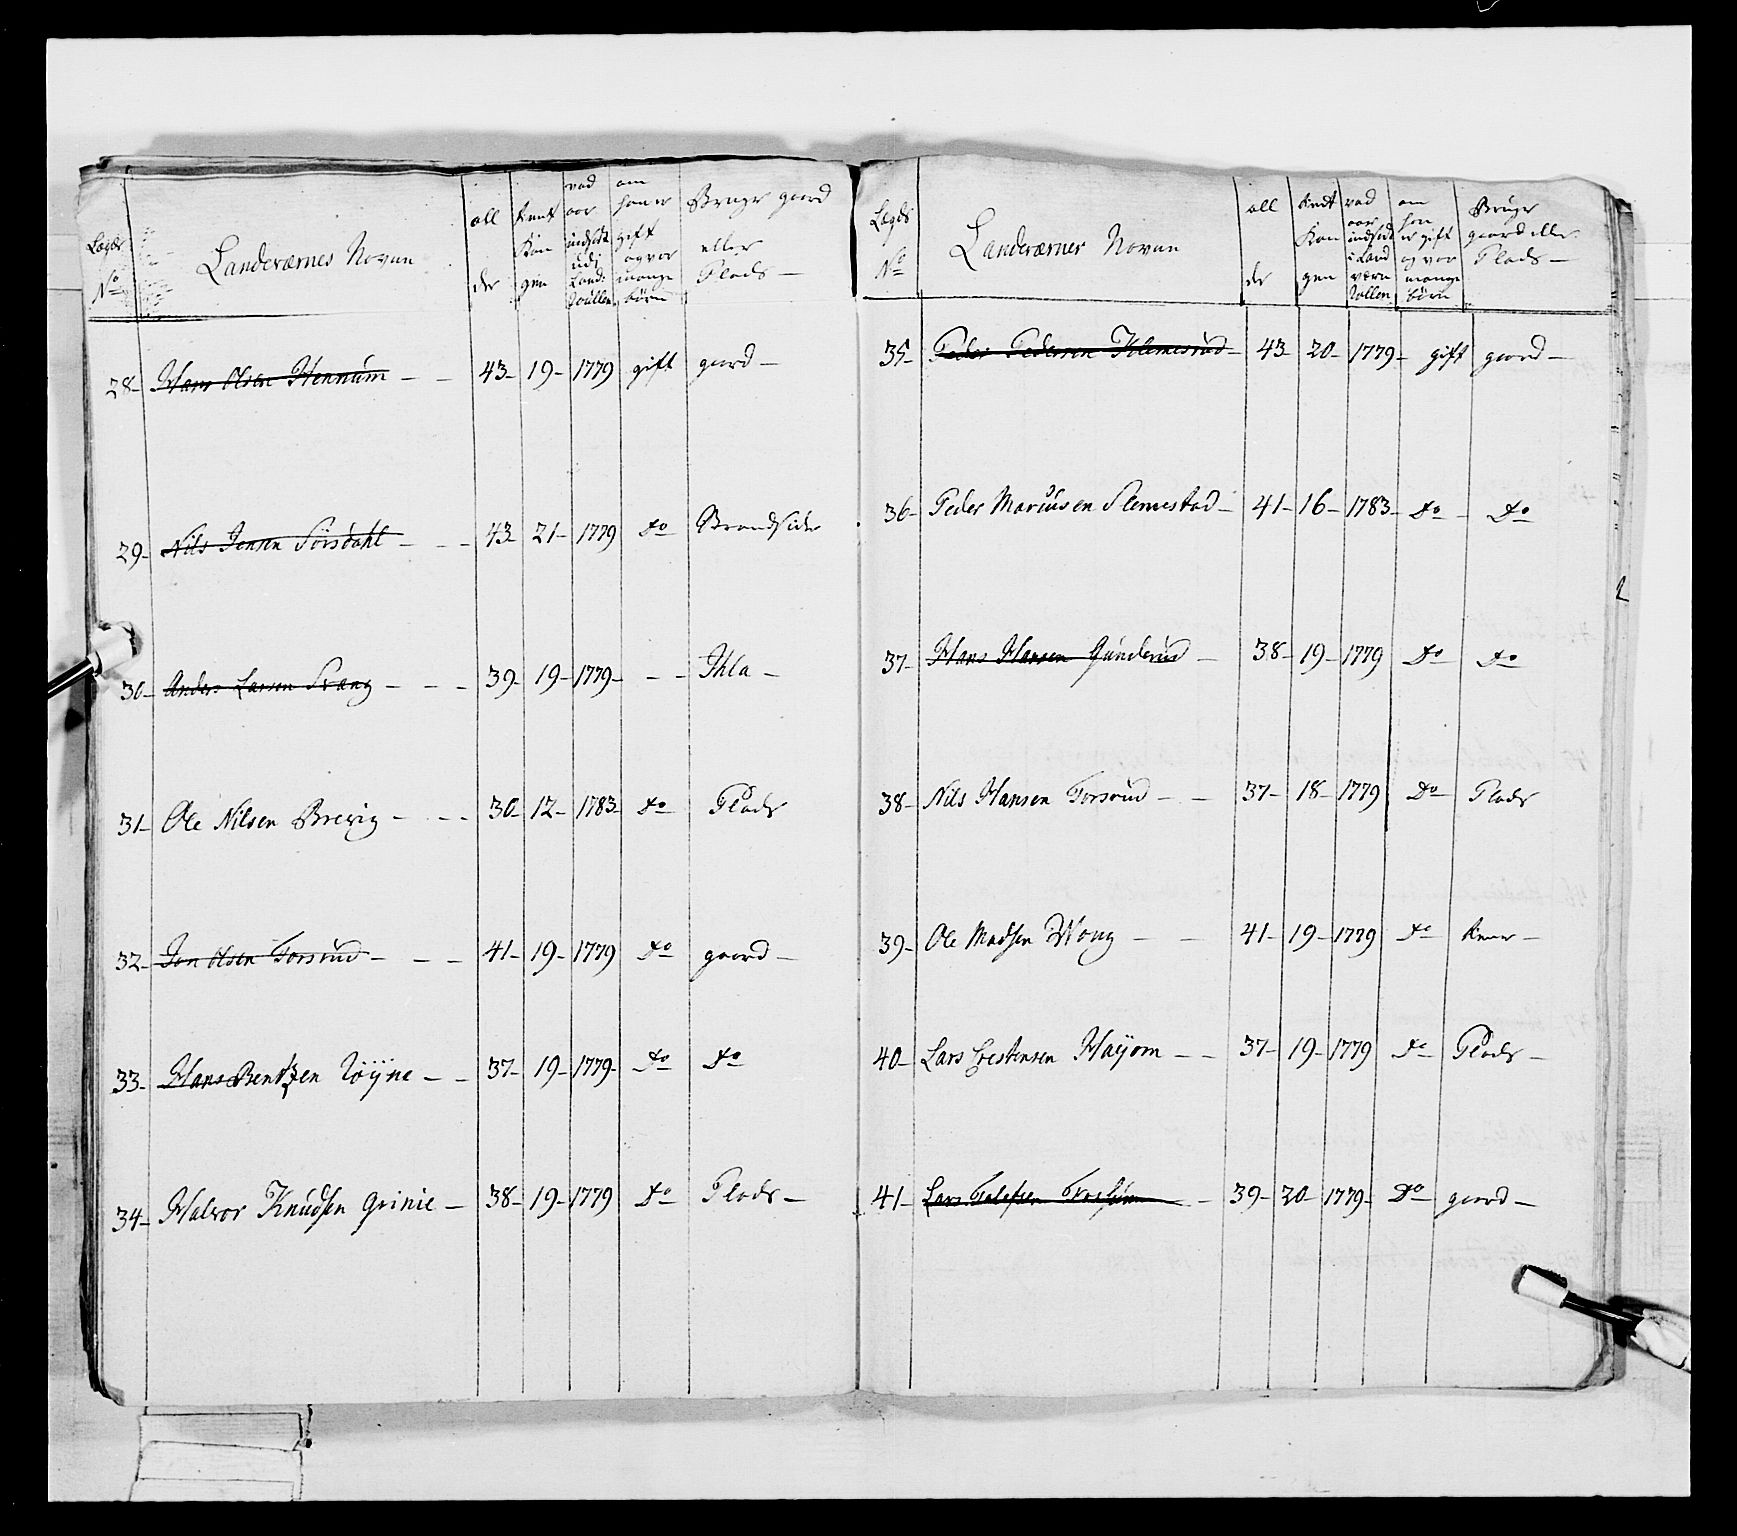 Lægds No
Landeværnes Navne
all der
tient Kongen
vad aar indsat udi Land: Roullen
om han er gift og vor mange børn
Bruger gaard eller Plads —
28 - Hans Olsen Hennum - - 43 - 19 - 1779 gift gaard —
29 - Nils Jensen Sørsdahl - - - 43 - 21 - 1779 Do Strandsider
30 - Anders Larsen Svang - - - 39 - 19 - 1779 - - - Ihla -
31 - Ole Nilsen Brevig - - - 30 - 12 - 1783 - Do Plads
32 - Jon Olsen Torsrud - - - 41 - 19 - 1779 Do gaard —
33 - Hans Bentzen Røijne - - 37 - 19 - 1779 - Do Do
34 - Halvor Knudsen Grinie - 38 - 19 - 1779 Do Plads -
Lægds No
Landeværnes Navne
all der
tient Kongen
vad aar indsat i Land værn Rollen
om han er gift og vor mange børn
Bruger gaard eller Plads —
35 - Peder Pedersen Klemesrud - 43 20 - 1779 - gift gaard —
36 - Peder Mariusen Slemestad - 41 - 16 - 1783 - Do - Do
37 - Hans Hansen Gunderud - 38 - 19 - 1779 Do Do
38 - Nils Hansen Torsrud - - 37 - 18 - 1779 Do Plads
39 - Ole Madsen Wang - - 41 - 19 - 1779 Do -
40 - Lars Crestensen Haijom - - 37 - 19 - 1779 Do Plads -
41 - Lars - 39 - 20 - 1779 - Do gaard —